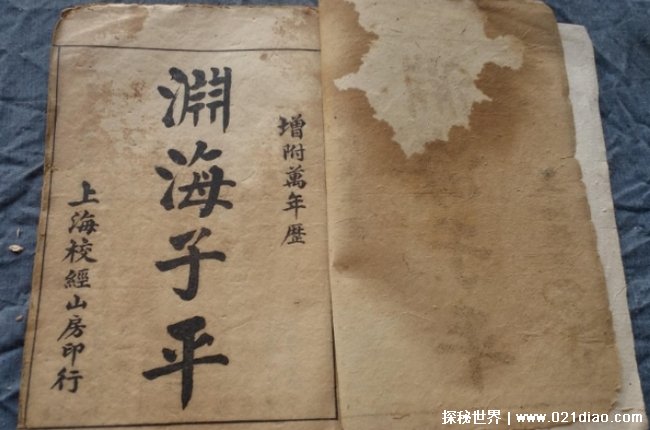 增附萬年歷
淵海子平
上海校經山房印行
探秘世界 | www.021diao.com